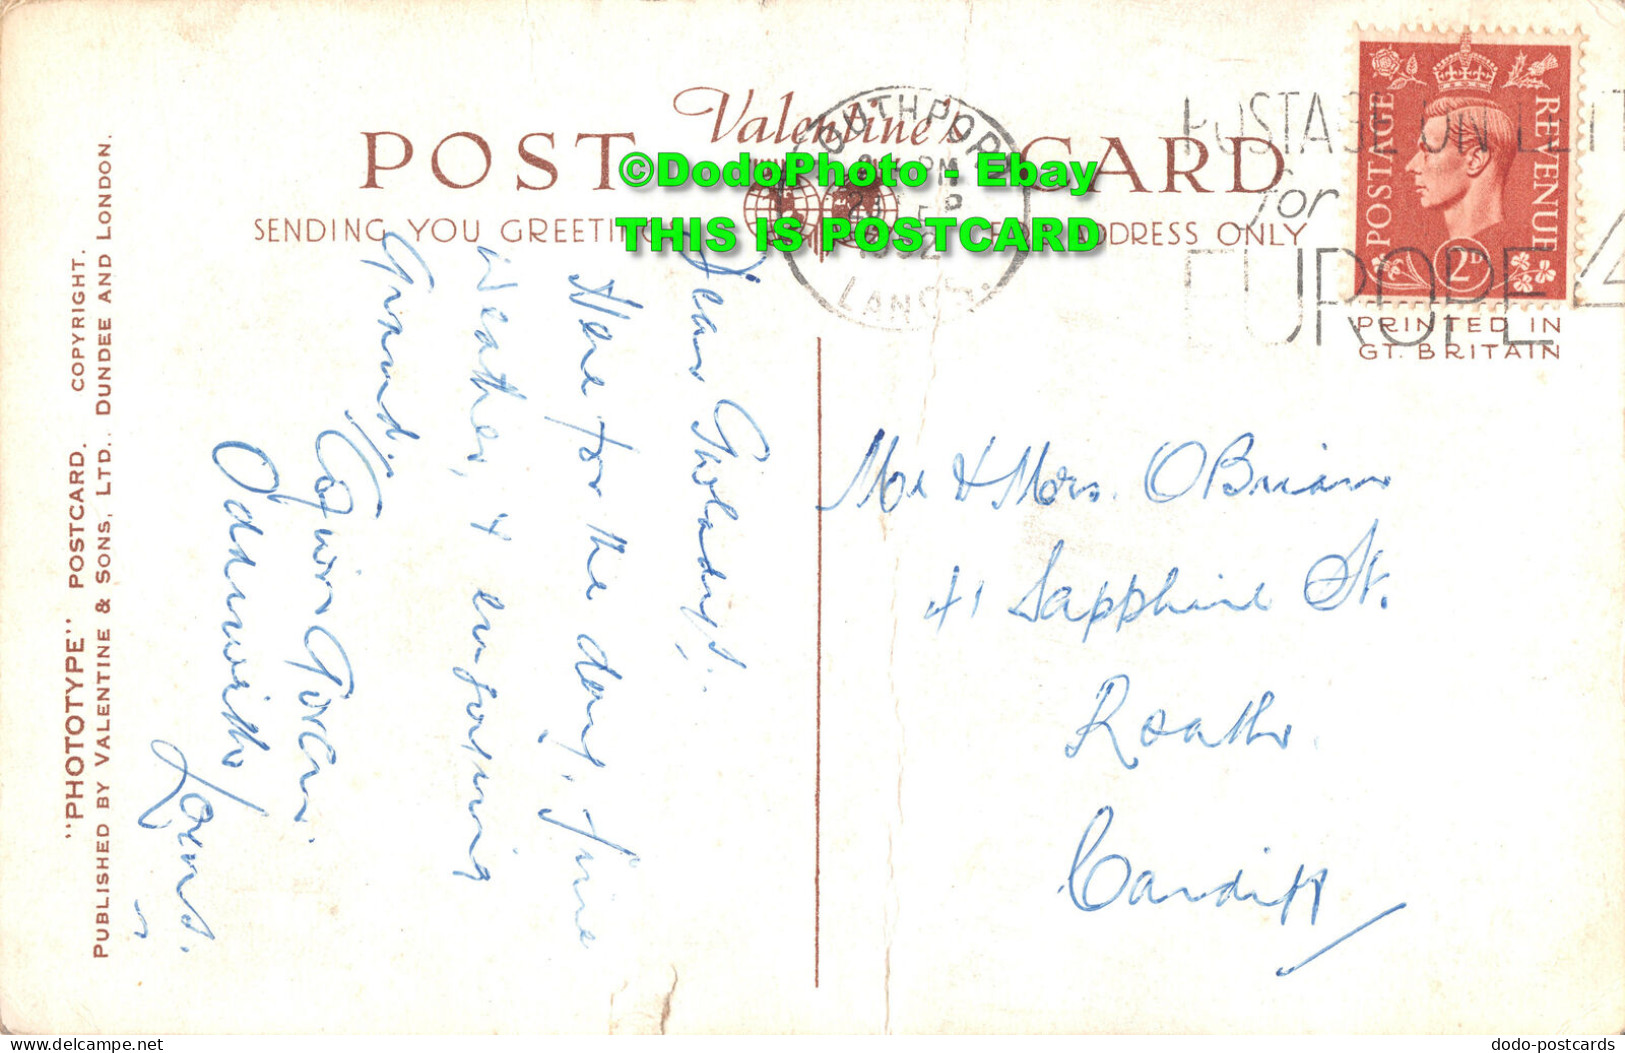 Valentine's
POST CARD
SENDING YOU GREETI
ADDRESS ONLY
©DodoPhoto - Ebay
THIS IS POSTCARD
SOUTHPORT
PM
1952
LANCS.
POSTAGE ON LETT
for
EUROPE
4
POSTAGE
REVENUE
2D
PRINTED IN
GT. BRITAIN
"PHOTOTYPE" POSTCARD. COPYRIGHT.
PUBLISHED BY VALENTINE & SONS, LTD., DUNDEE AND LONDON.
Dear Gladys:
Here for the day, fine
weather, & enjoying
Grand.
Mr & Mrs. OBrian
41 Sapphire St.
Roath.
Cardiff
dodo-postcards
delcampe.net